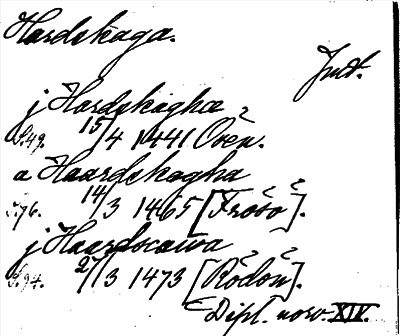 Hardskaga.
Jmt.
j Hardskagha
S.49. 15/4 1441 Oven.
a Haardskagha
S.76. 14/3 1465 [Froso].
j Haardscawa
S.94. 27/3 1473 [Rödön].
Dipl. norv. XIV.